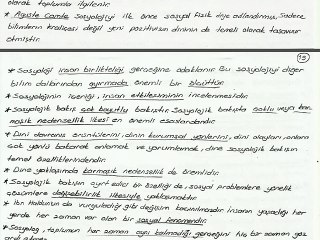 olarak toplumda ilgilenir.
* Auguste Comte sosyolojiyi ilk önce sosyal fizik diye adlandırmış. Sadece
bilimlerin kraliçesi değil yeni pozitivizm dininin de temeli olarak tasavvur
etmiştir.
* Sosyoloji insan birlikteliği gerçeğine odaklanır. Bu sosyolojiyi diğer
bilim dallarından ayırmada önemli bir ölçüttür.
* Sosyolojinin içeriği, insan etkileşiminin incelenmesidir.
* Sosyolojik bakış çok boyutlu bakıştır. Sosyolojik bakışta çoklu veya kar-
maşık nedensellik ilkesi en önemli esaslardandır.
* Dini davranış örüntülerini, dinin kurumsal yönlerini, dini olayları onlara
çok yönlü bakarak anlamak ve yorumlamak, dine sosyolojik bakışın
temel özelliklerindendir.
* Dine yaklaşımda karmaşık nedensellik de önemlidir.
* Sosyolojik bakışın ayırt edici bir özelliği de, sosyal problemlere yönelik
çözümlere değişebilirlik ilkesiyle yaklaşmaktır.
* İbn Haldun'un da vurguladığı gibi değişim kaçınılmazdır. İnsanın yaşadığı her
yerde her zaman var olan bir sosyal fenomendir.
* Sosyolog, toplumun her zaman aynı kalmadığı gerçeğini hiç bir zaman göz